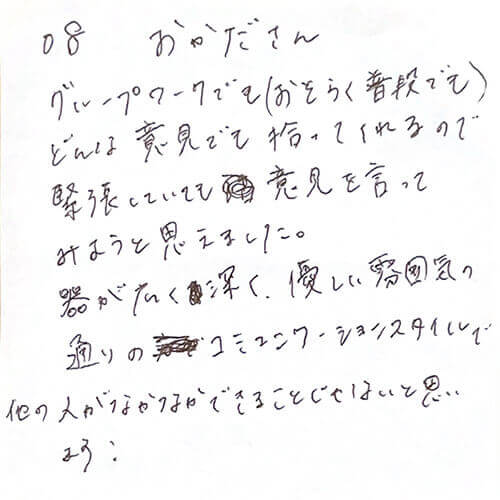 08 おかださん
グループワークでも(おそらく普段でも)
どんな意見でも拾ってくれるので
緊張していても意見を言って
みようと思えました。
器が広く深く、優しい雰囲気の
通りのコミュニケーションスタイルで
他の人がなかなかできることじゃないと思い
ます: